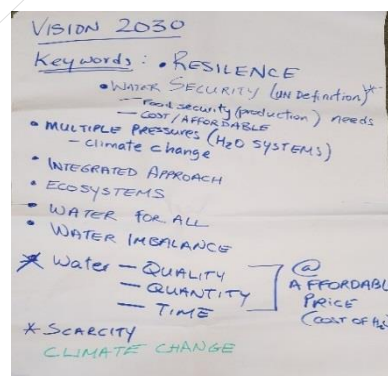 VISION 2030
Keywords: • RESILENCE
• WATER SECURITY (UN Definition)*
— Food security (production) needs
— COST/AFFORDABLE
• MULTIPLE PRESSURES (H2O SYSTEMS)
– climate change
• INTEGRATED APPROACH
• ECOSYSTEMS
• WATER FOR ALL
• WATER IMBALANCE
* Water — QUALITY
— QUANTITY
— TIME
@
AFFORDABL
PRICE
(COST OF H2
* SCARCITY
CLIMATE CHANGE